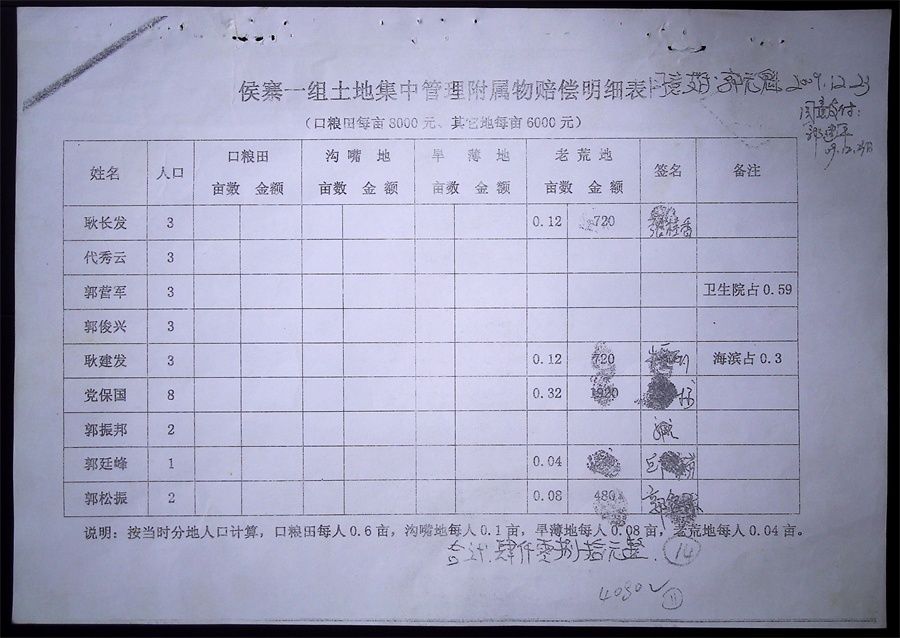 侯寨一组土地集中管理附属物赔偿明细表 2009.12.23
（口粮田每亩8000元、其它地每亩6000元）
姓名 人口 口粮田 沟嘴地 旱薄地 老荒地 签名 备注
亩数 金额 亩数 金额 亩数 金额 亩数 金额
耿长发 3 0.12 720
代秀云 3
郭营军 3 卫生院占0.59
郭俊兴 3
耿建发 3 0.12 720 海滨占0.3
党保国 8 0.32 1920
郭振邦 2
郭廷峰 1 0.04
郭松振 2 0.08 480
说明：按当时分地人口计算，口粮田每人0.6亩，沟嘴地每人0.1亩，旱薄地每人0.08亩，老荒地每人0.04亩。
合计：肆仟零捌拾元整. 14
4080 11